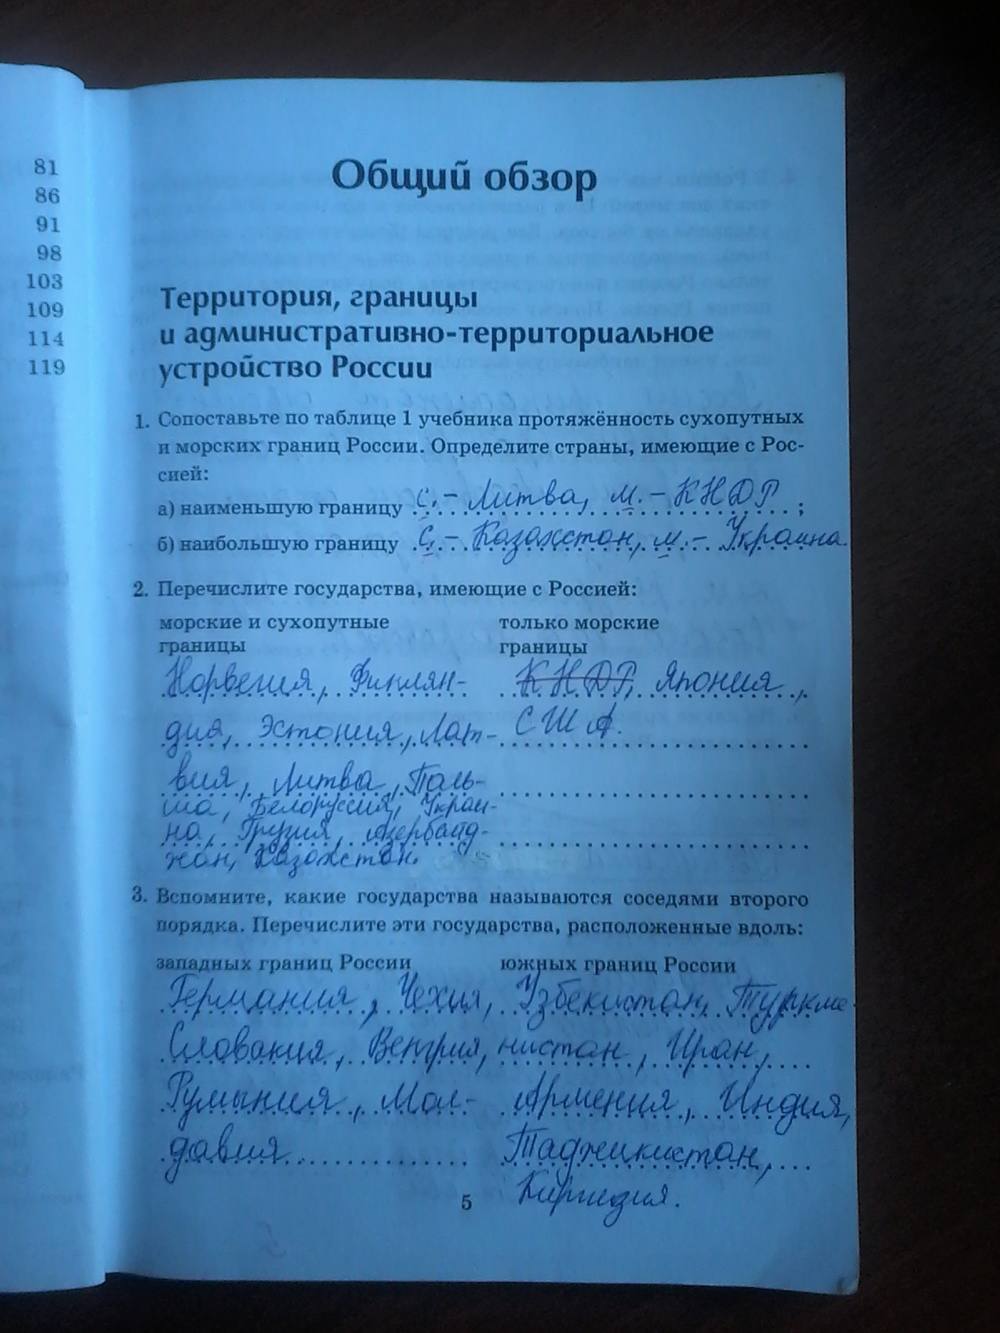 81
86
91
98
103
109
114
119
Общий обзор
Территория, границы
и административно-территориальное
устройство России
1. Сопоставьте по таблице 1 учебника протяжённость сухопутных
и морских границ России. Определите страны, имеющие с Рос-
сией:
а) наименьшую границу с. – Литва, м. – КНДР ;
б) наибольшую границу с. – Казахстан, м. – Украина.
2. Перечислите государства, имеющие с Россией:
морские и сухопутные
границы
Норвегия, Финлян-
дия, Эстония, Лат-
вия, Литва, Поль-
ша, Белоруссия, Украи-
на, Грузия, Азербайд-
жан, Казахстан.
только морские
границы
КНДР, Япония,
США.
3. Вспомните, какие государства называются соседями второго
порядка. Перечислите эти государства, расположенные вдоль:
западных границ России
Германия, Чехия,
Словакия, Венгрия,
Румыния, Мол-
давия
южных границ России
Узбекистан, Туркме-
нистан, Иран,
Армения, Индия,
Таджикистан,
Киргизия.
5